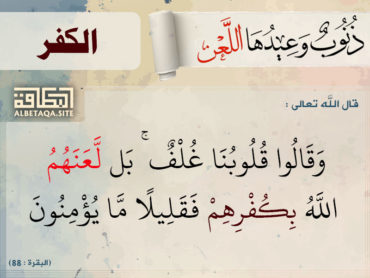 ذُنُوبٌ وَعِيدُهَا اللَّعْن
الكفر
البطاقة
ALBETAQA.SITE
قال الله تعالى :
وَقَالُوا قُلُوبُنَا غُلْفٌ ۚ بَل لَّعَنَهُمُ
اللَّهُ بِكُفْرِهِمْ فَقَلِيلًا مَّا يُؤْمِنُونَ
(البقرة : 88)